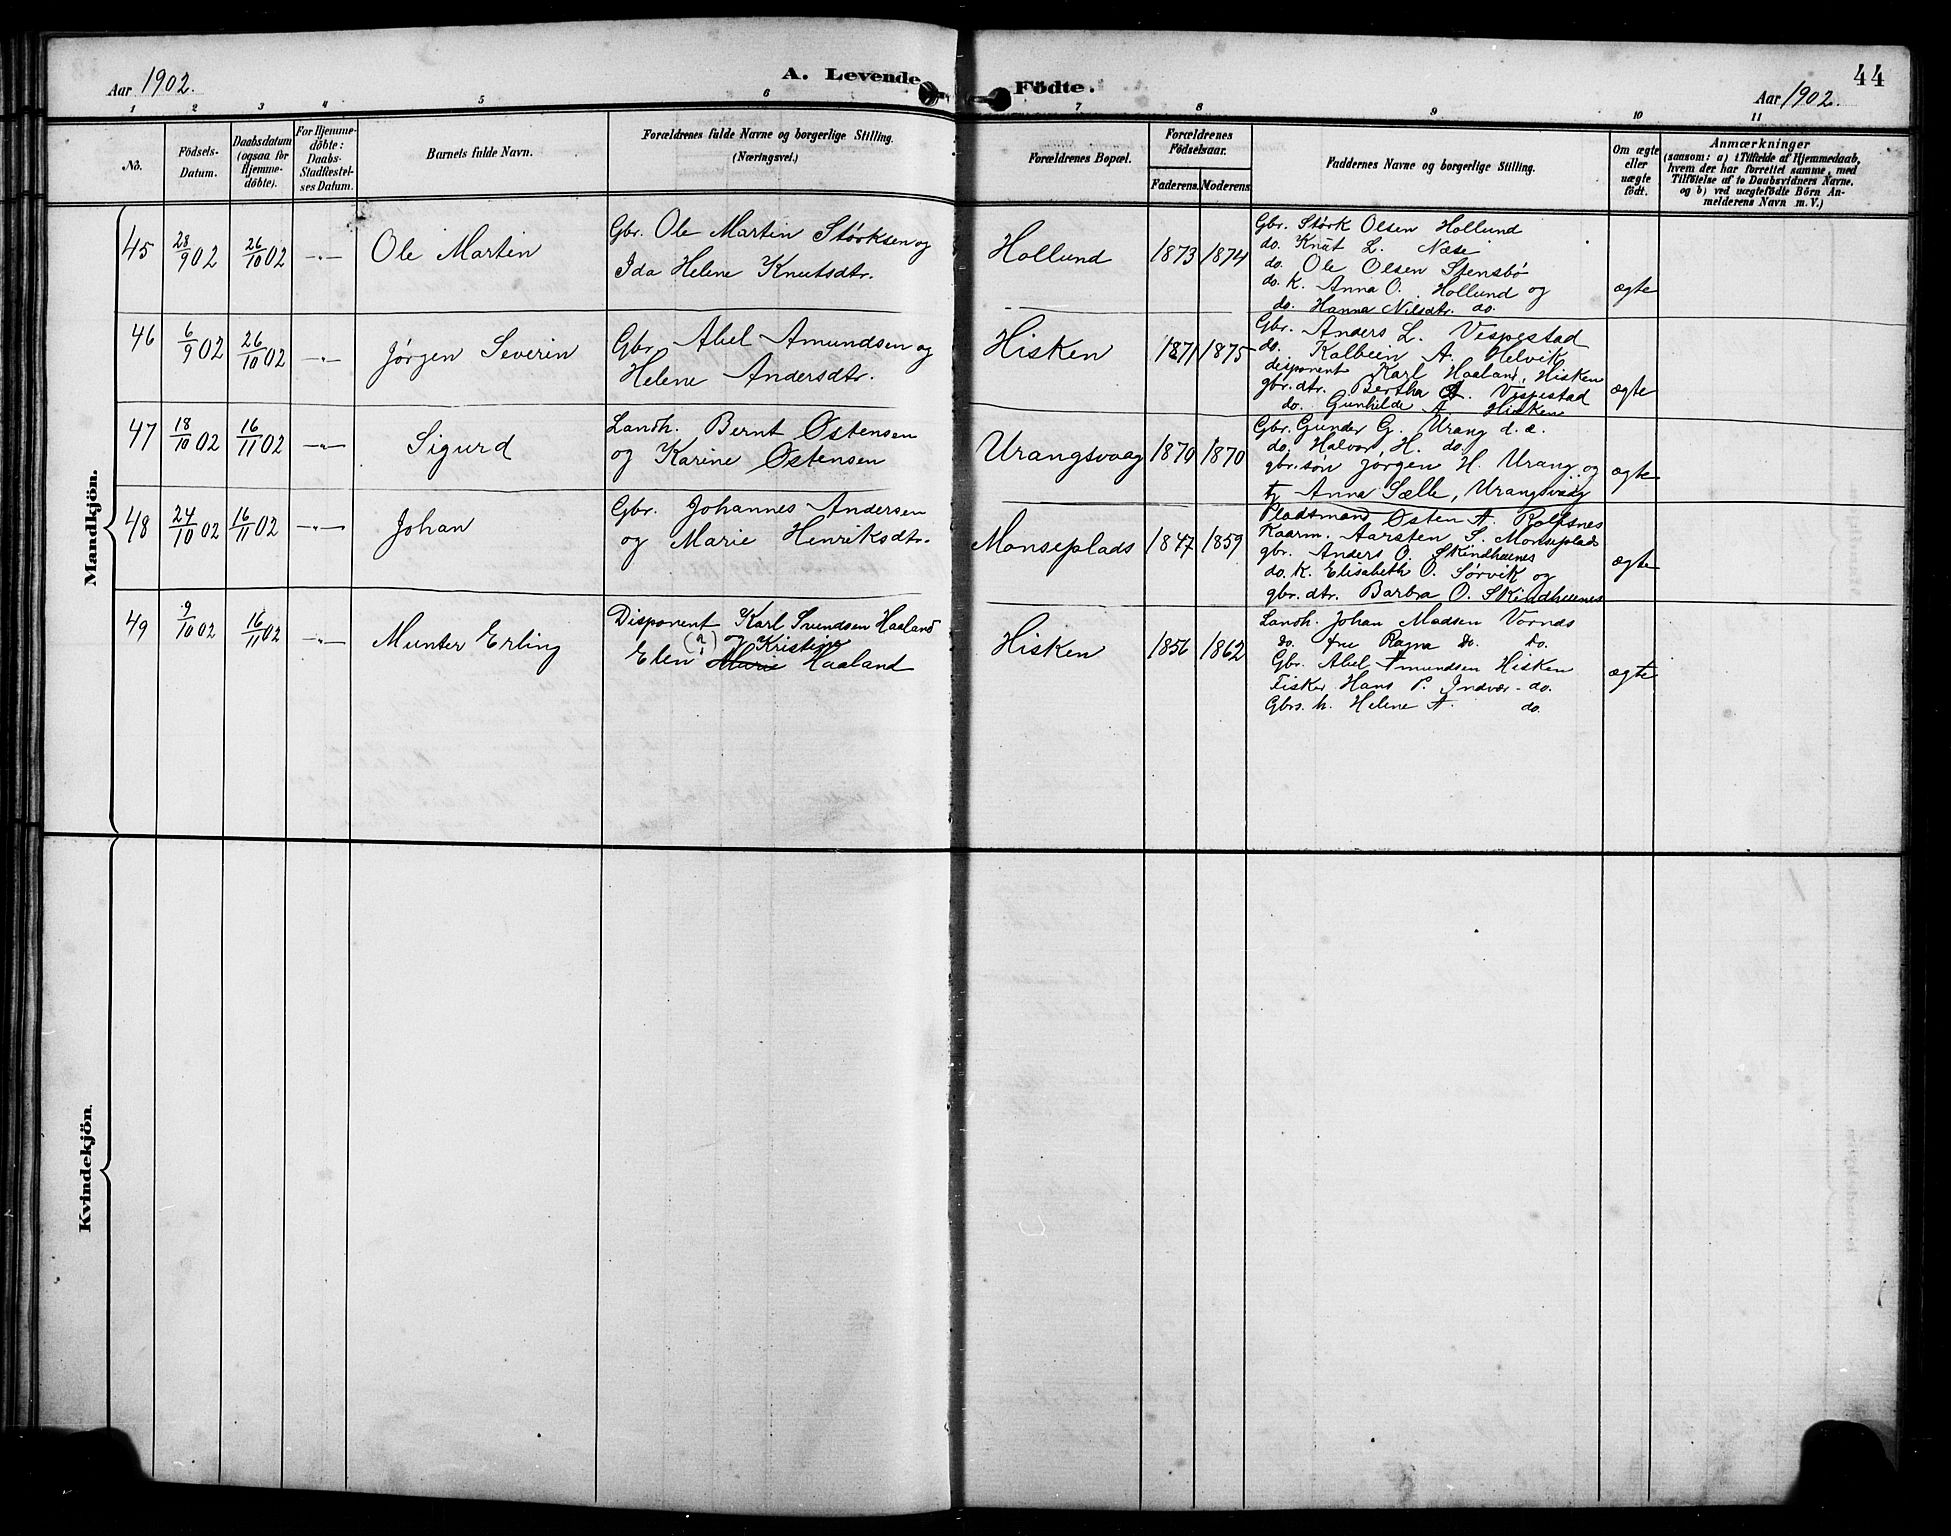 Aar 1902.
A. Levende
Födte.
44
Aar 1902.
1 2 3 4 5 6 7 8 9 10 11
No.
Födsels-
Datum.
Daabsdatum
(ogsaa for
Hjemme-
döbte).
For Hjemme-
döbte:
Daabs-
Stadfæstel-
ses Datum.
Barnets fulde Navn.
Forældrenes fulde Navne og borgerlige Stilling.
(Næringsvei.)
Forældrenes Bopæl.
Forældrenes
Födselsaar.
Faderens. Moderens.
Faddernes Navne og borgerlige Stilling.
Om ægte
eller
uægte
födt.
Anmærkninger
(saasom: a) i Tilfælde af Hjemmedaab,
hvem der har forrettet samme, med
Tilföielse af to Daabsvidners Navne.
og b) ved uægtefödte Börn An-
melderens Navn m. V.)
Mandkjön.
45 28/9 02 26/10 02 -"- Ole Martin
Gbr. Ole Martin Størksen og
Ida Helene Knutsdtr.
Hollund 1873 1874
Gbr. Størk Olsen Hollund
do. Knut L. Næse
do. Ole Olsen Stensbø
do. K. Anna O. Hollund og
do. Hanna Nilsdtr. do.
ægte
46 6/9 02 26/10 02 -"- Jørgen Severin
Gbr. Abel Amundsen og
Helene Andersdtr.
Hisken 1871 1875
Gbr. Anders L. Vespestad
do. Kolbeen A. Helvik
disponent Karl Haaland, Hisken
gbr. dtr. Bertha A. Vespestad
do. Gunhilde A. Hisken
ægte
47 18/10 02 16/11 02 -"- Sigurd
Landh. Bernt Østensen
og Karine Østensen
Urangsvaag 1870 1870
Gbr. Gunder G. Urang d. æ.
do. Halvor H. do.
gbr. søn Jørgen H. Urang og
tj. Anna Sælle, Urangsvaag
ægte
48 24/10 02 16/11 02 -"- Johan
Gbr. Johannes Andersen
og Marie Henriksdtr.
Monseplads 1847 1859
Pladsmand Østen A. Rolfsnes
Kaarm. Aarsten S. Monseplads
gbr. Anders O. Skindhuenes
do. K. Elisabeth O. Sørvik og
gbr. dtr. Barbra O. Skindhuenes
ægte
49 9/10 02 16/11 02 -"- Munter Erling
Disponent Karl Svendsen Haaland
og Kristine
Elen Marie Haaland
Hisken 1856 1862
Landh. Johan Madsen Vornes
do. fru Ragna do. do.
Gbr. Abel Amundsen Hisken
Fisker Hans P. Indvær - do.
Gbrs. k. Helene A. do.
ægte
Kvindekjön.